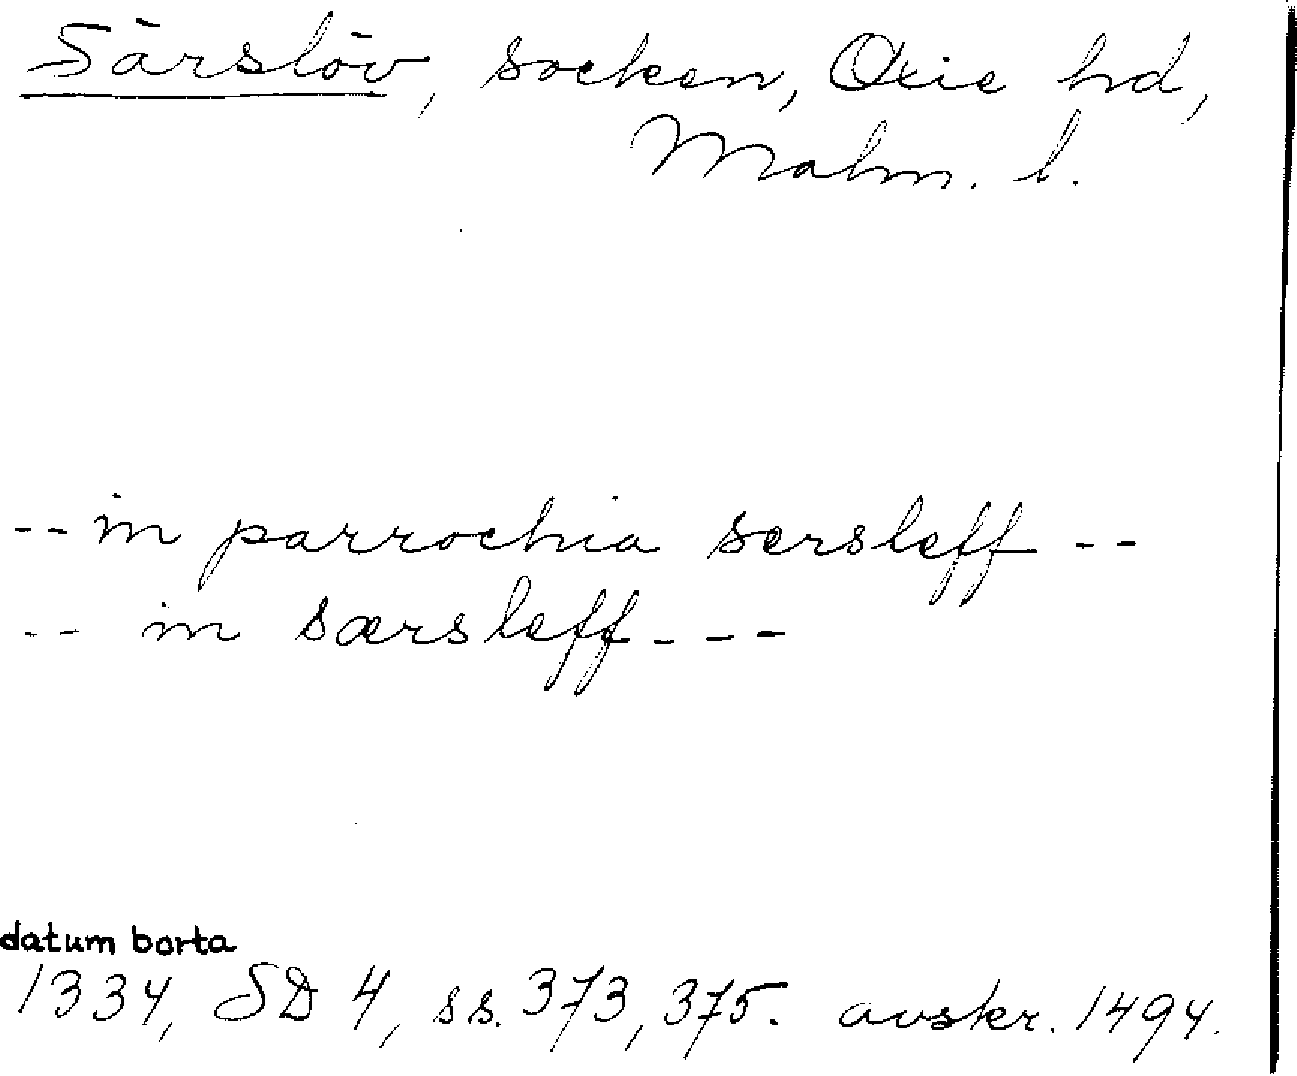 Särslöv, socken, Oxie hd,
Malm. l.
-- in parrochia sersleff --
-- in særsleff ---
datum borta
1334, SD 4, ss. 373, 375. avskr. 1494.